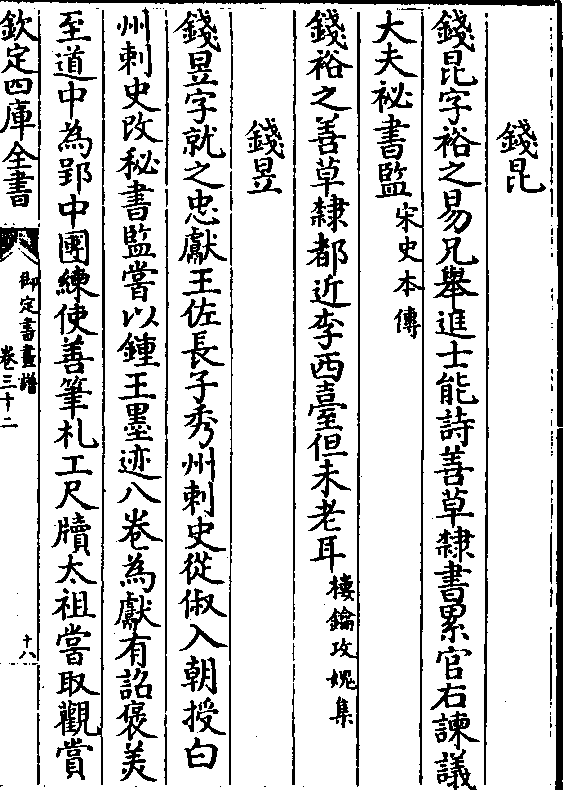 錢昆
錢昆字裕之易兄舉進士能詩善草隸書累官右諫議
大夫祕書監宋史本傳
錢裕之善草隸都近李西臺但未老耳樓鑰攻媿集
錢昱
錢昱字就之忠獻王佐長子秀州刺史從俶入朝授白
州刺史改秘書監嘗以鍾王墨迹八卷為獻有詔褒美
至道中為郢中團練使善筆札工尺牘太祖嘗取觀賞
欽定四庫全書
御定書畫譜
卷三十二
十八